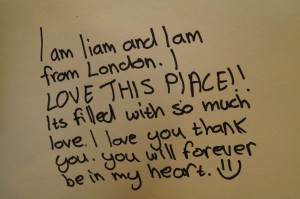 I am liam and I am
from London. I
LOVE THIS PlACE!!
Its filled with so much
love. I love you thank
you. you will forever
be in my heart.